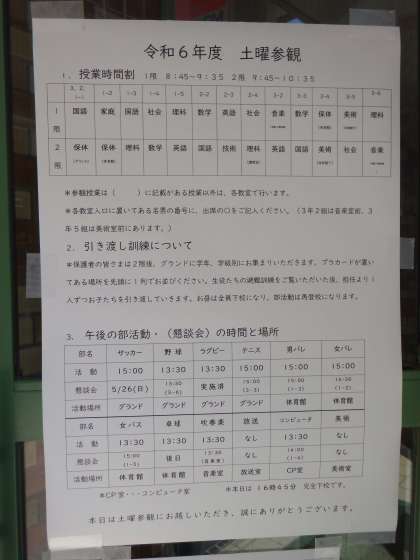 令和６年度　土曜参観
１．授業時間割　１限　８：４５～９：３５　２限　９：４５～１０：３５
1-2 1-3 1-4 2-1 2-2 2-3 2-4 3-2 3-3 3-4 3-5 3-6
1限 国語 家庭 国語 社会 理科 数学 英語 社会 音楽 数学 保体 美術 理科
2限 保体 保体 理科 数学 英語 国語 技術 理科 英語 国語 美術 社会 音楽
＊参観授業は（　　　）に記載がある授業以外は、各教室で行います。
＊各教室入口に置いてある名票の番号に、出席の○をご記入ください。（３年２組は音楽室前、３
年５組は美術室前にあります。）
２．引き渡し訓練について
＊保護者の皆さまは２限後、グランドに学年、学級別にお集まりいただきます。プラカードが置い
てある場所を先頭に１列でお並びください。生徒たちの避難訓練をご覧いただいた後、担任より１
人ずつお子たちを引き渡していきます。お昼は全員下校になり、部活動は再登校になります。
３．午後の部活動・（懇談会）の時間と場所
部名 サッカー 野球 ラグビー テニス 男バレ 女バレ
活動 15:00 13:30 13:30 15:00 15:00 15:00
懇談会 5/26(日) 13:30 実施済 15:00 15:00
活動場所 グランド グランド グランド グランド 体育館 体育館
部名 女バス 卓球 吹奏楽 放送 コンピュータ 美術
活動 13:30 13:30 13:30 なし 13:30 なし
懇談会 15:00 後日 13:30 なし 14:00 なし
活動場所 体育館 体育館 音楽室 放送室 CP室 美術室
＊CP室・・コンピュータ室　＊本日は　１６時４５分　完全下校です。
本日は土曜参観にお越しいただき、誠にありがとうございます。